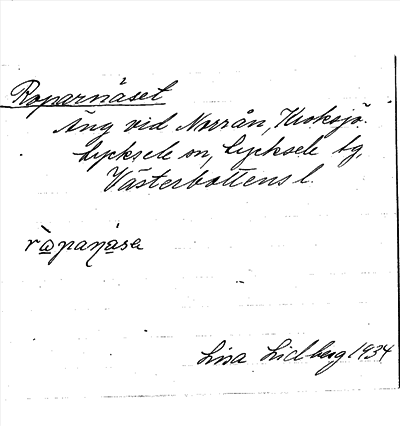 Roparnäset
Äng vid Norrån, Kroksjö.
Lycksele sn, Lycksele tg,
Västerbottens l.
Lisa Lidberg 1934